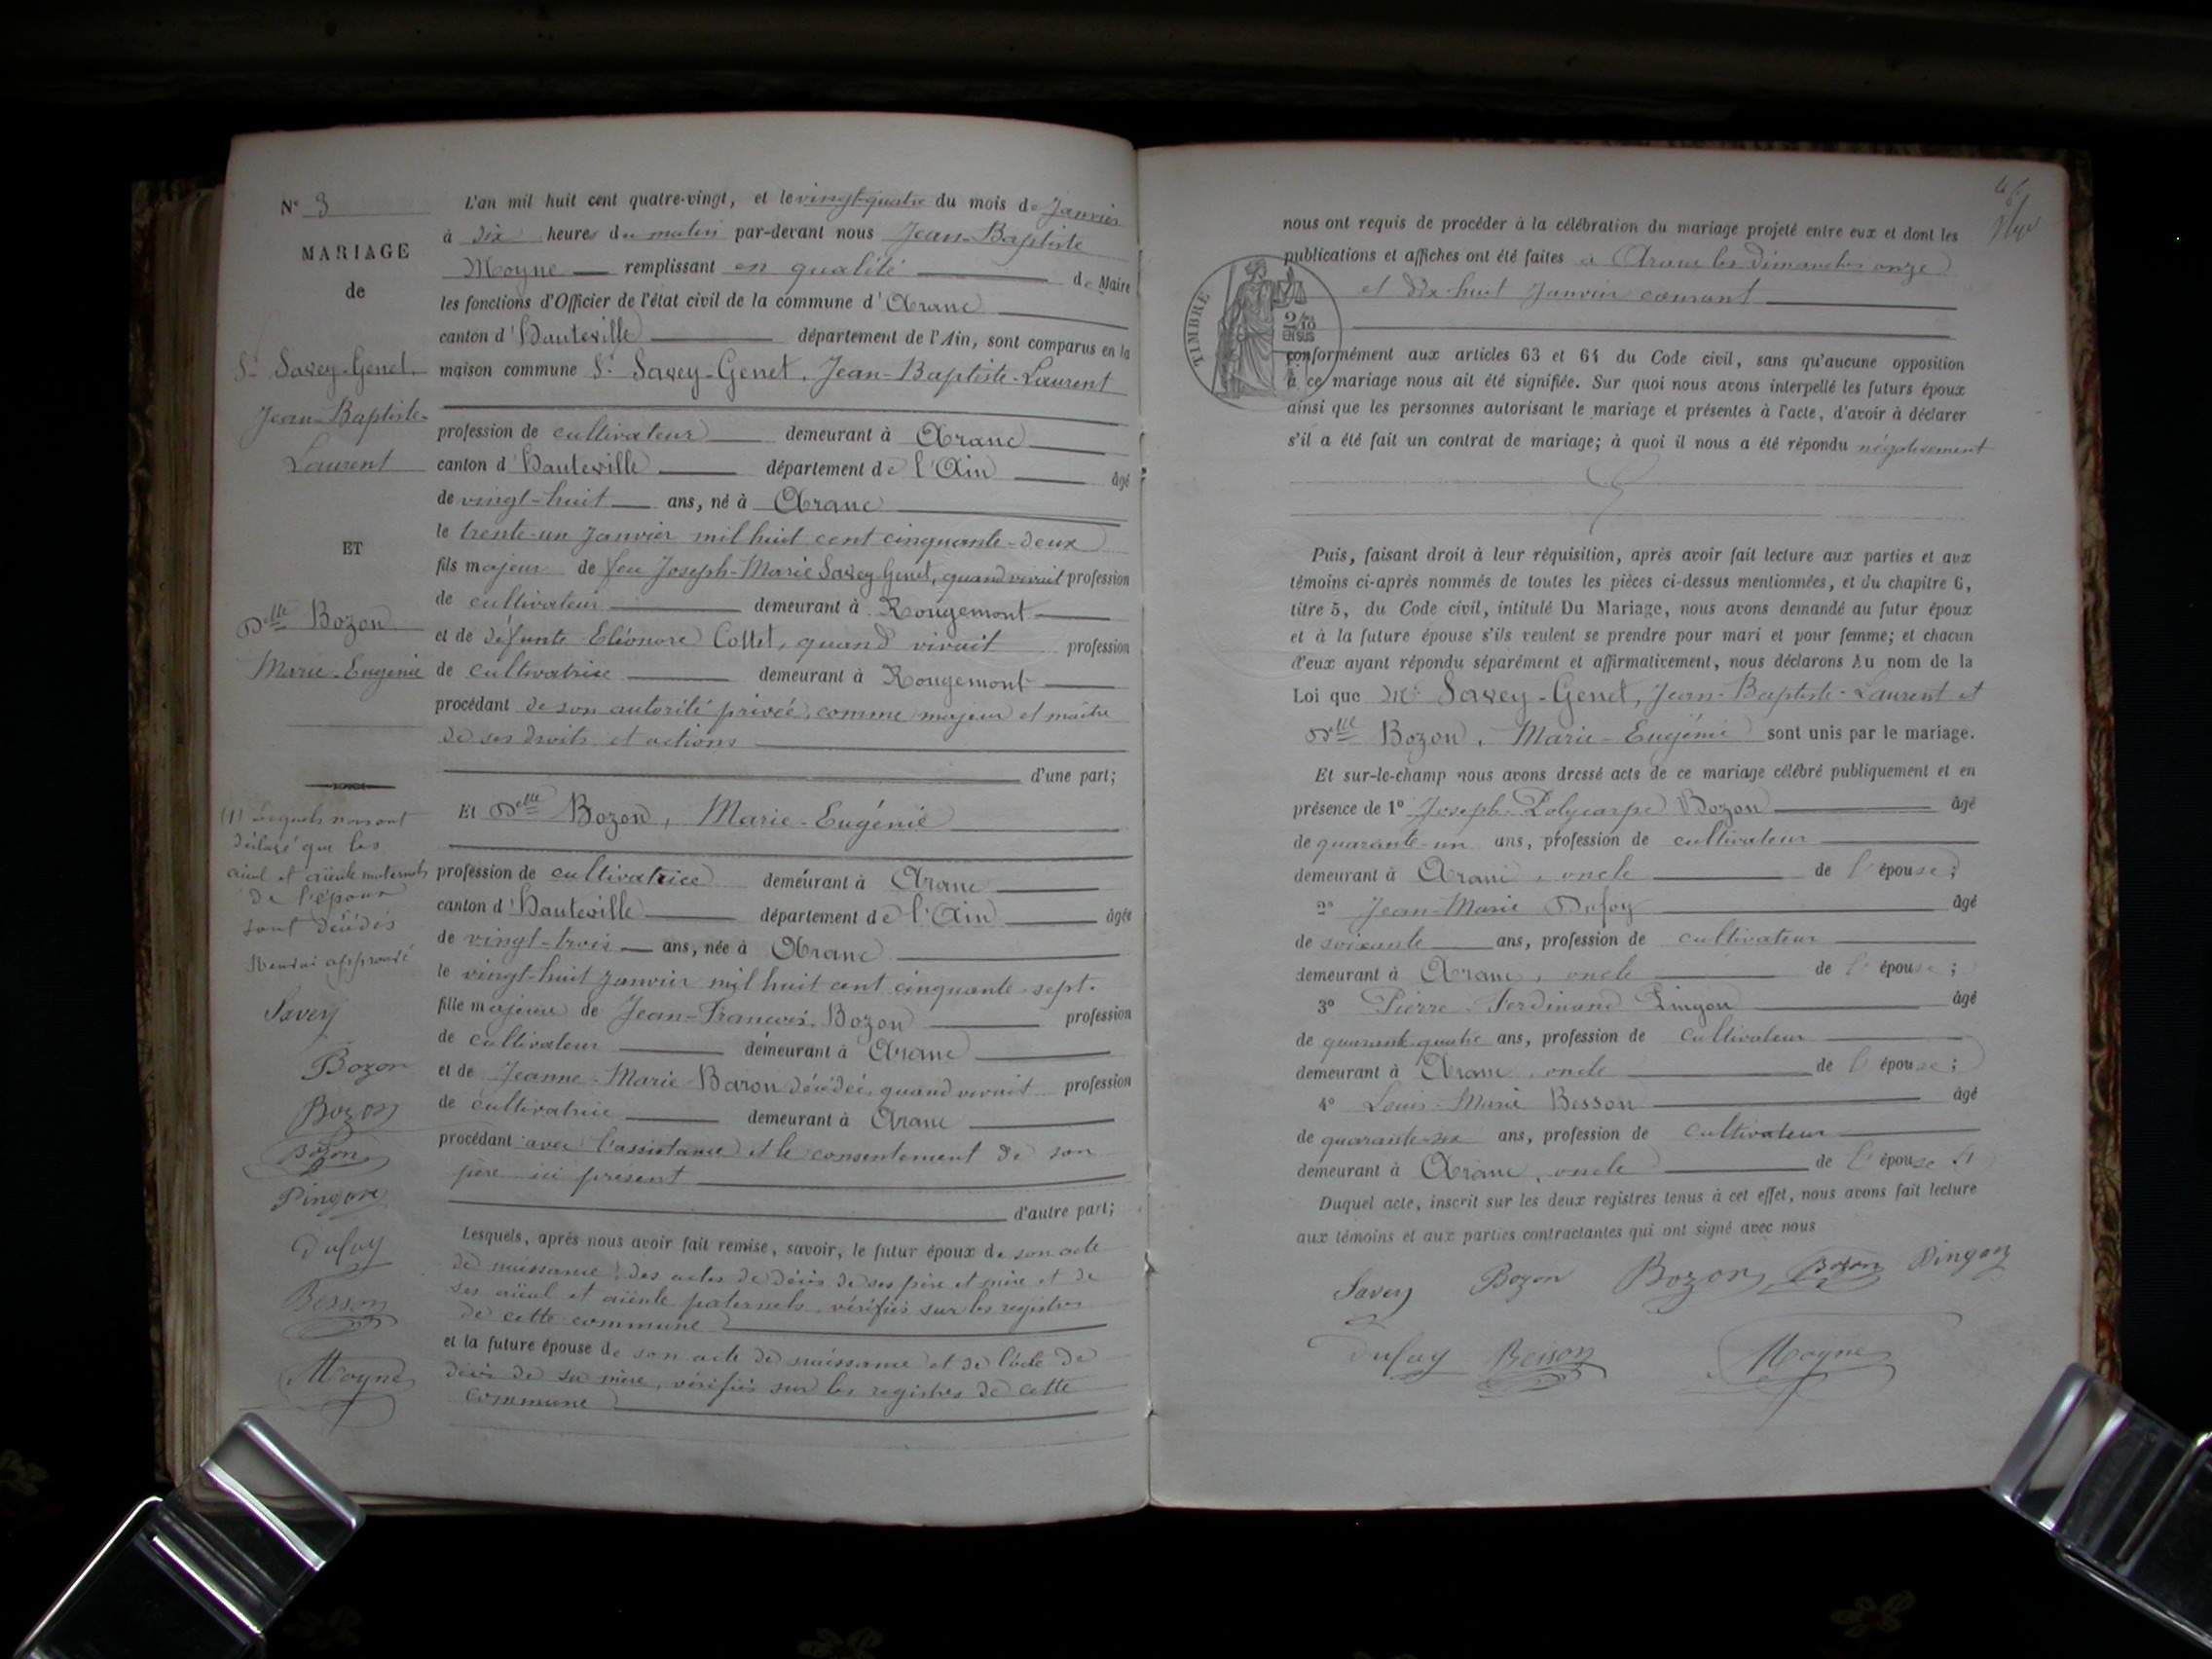 N° 3
MARIAGE
de
Sr Savey-Genet,
Jean-Baptiste-
Laurent
ET
Delle Bozon
Marie-Eugénie
(1) Lesquels nous ont
déclaré que les
aieul et aïeule maternels
de l'époux
sont décédés
Renvoi approuvé
Savey
Bozon
Bozon
Bozon
Pingon
Dufay
Besson
Moyne
L'an mil huit cent quatre-vingt, et le vingt-quatre du mois de Janvier
à dix heures du matin par-devant nous Jean-Baptiste
Moyne remplissant en qualité de Maire
les fonctions d'Officier de l'état civil de la commune d'Aranc
canton d'Hauteville département de l'Ain, sont comparus en la
maison commune Sr Savey-Genet, Jean-Baptiste-Laurent
profession de cultivateur demeurant à Aranc
canton d'Hauteville département de l'Ain âgé
de vingt-huit ans, né à Aranc
le trente-un Janvier mil huit cent cinquante-deux
fils majeur de feu Joseph-Marie Savey Genet, quand vivait profession
de cultivateur demeurant à Rougemont
et de défunte Eléonore Collet, quand vivait profession
de cultivatrice demeurant à Rougemont
procédant de son autorité privée, comme majeur et maître
de ses droits et actions
d'une part;
Et Delle Bozon, Marie-Eugénie
profession de cultivatrice demeurant à Aranc
canton d'Hauteville département de l'Ain âgée
de vingt-trois ans, née à Aranc
le vingt-huit Janvier mil huit cent cinquante-sept.
fille majeure de Jean-François Bozon profession
de cultivateur demeurant à Aranc
et de Jeanne-Marie Baron décédée, quand vivait profession
de cultivatrice demeurant à Aranc
procédant avec l'assistance et le consentement de son
père ici présent
d'autre part;
Lesquels, après nous avoir fait remise, savoir, le futur époux de son acte
de naissance, des actes de décès de ses père et mère et de
ses aïeul et aïeule paternels, vérifiés sur les registres
de cette commune
et la future épouse de son acte de naissance et de l'acte de
décès de sa mère, vérifiés sur les registres de cette
commune
nous ont requis de procéder à la célébration du mariage projeté entre eux et dont les
publications et affiches ont été faites à Aranc les dimanches onze
et dix-huit Janvier courant
TIMBRE
2/10
EN SUS
conformément aux articles 63 et 64 du Code civil, sans qu'aucune opposition
à ce mariage nous ait été signifiée. Sur quoi nous avons interpellé les futurs époux
ainsi que les personnes autorisant le mariage et présentes à l'acte, d'avoir à déclarer
s'il a été fait un contrat de mariage; à quoi il nous a été répondu négativement
Puis, faisant droit à leur réquisition, après avoir fait lecture aux parties et aux
témoins ci-après nommés de toutes les pièces ci-dessus mentionnées, et du chapitre 6,
titre 5, du Code civil, intitulé Du Mariage, nous avons demandé au futur époux
et à la future épouse s'ils veulent se prendre pour mari et pour femme; et chacun
d'eux ayant répondu séparément et affirmativement, nous déclarons Au nom de la
Loi que Mr Savey-Genet, Jean-Baptiste-Laurent et
Delle Bozon, Marie-Eugénie sont unis par le mariage.
Et sur-le-champ nous avons dressé acts de ce mariage célébré publiquement et en
présence de 1° Joseph-Polycarpe Bozon âgé
de quarante-un ans, profession de cultivateur
demeurant à Aranc, oncle de l'épouse;
2° Jean-Marie Dufay âgé
de soixante ans, profession de cultivateur
demeurant à Aranc, oncle de l'épouse;
3° Pierre-Ferdinand Pingon âgé
de quarante-quatre ans, profession de cultivateur
demeurant à Aranc, oncle de l'épouse;
4° Louis-Marie Besson âgé
de quarante-six ans, profession de cultivateur
demeurant à Aranc, oncle de l'épouse
Duquel acte, inscrit sur les deux registres tenus à cet effet, nous avons fait lecture
aux témoins et aux parties contractantes qui ont signé avec nous
Savey Bozon Bozon Bozon Pingon
Dufay Besson Moyne